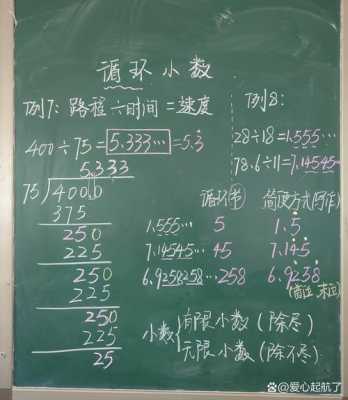 循环小数
例7: 路程÷时间=速度
400÷75=5.333…=5.3̇
5.333
75)4000
375
250
225
250
225
250
225
25
例8:
28÷18=1.555…
78.6÷11=7.14545…
循环节 简便方式(写作)
1.555… 5 1.5̇
7.14545… 45 7.14̇5̇
6.9258258…258 6.92̇38̇
(首位、末位)
小数{有限小数(除尽)
无限小数(除不尽)
@爱心起航了